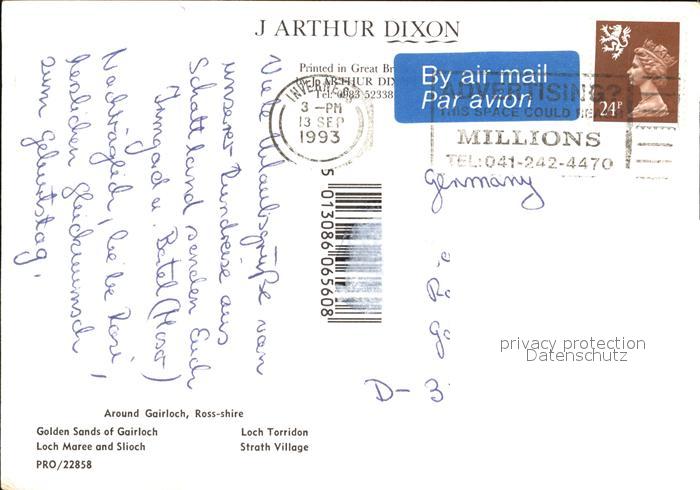 J ARTHUR DIXON
Printed in Great Br
by J. ARTHUR DIX
Tel: 0983 52338
By air mail
Par avion
24P
INVERNESS
3 -PM
13 SEP
1993
ADVERTISING?
THIS SPACE COULD REACH
MILLIONS
TEL:041-242-4470
Viele Urlaubsgrüße von
unserer Rundreise aus
Schottland senden Euch
Irmgard u. Bertel (Moser)
Nachträglich, liebe Rosi,
herzlichen Glückwunsch
zum Geburtstag.
Germany
D-
5 013086 065608
privacy protection
Datenschutz
Around Gairloch, Ross-shire
Golden Sands of Gairloch Loch Torridon
Loch Maree and Slioch Strath Village
PRO/22858